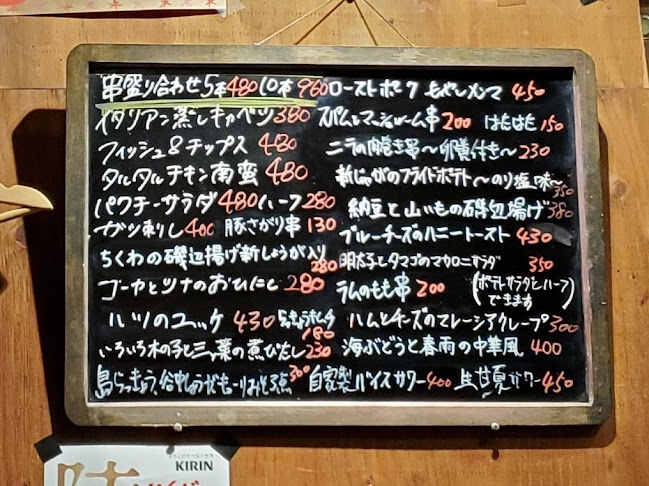 串盛り合わせ5本480 10本960
イタリアン蒸しキャベツ380
フィッシュ&チップス 480
タルタルチキン南蛮 480
パクチーサラダ 480 ハーフ280
ガツ刺し400 豚さがり串 130
ちくわの磯辺揚げ新しょうが入り280
ゴーヤとツナのおひたし280
ハツのユッケ 430
180
いろいろ木の子と三つ葉の煮びたし230
島らっきょう、谷中しょうが 3点300
ローストポーク もやしメンマ 450
スパムとマッシュルーム串200 はたはた150
ニラの肉巻き串〜卵黄付き〜230
新じゃがのフライドポテト〜のり塩味〜350
納豆と山いもの磯辺揚げ380
ブルーチーズのハニートースト 430
明太子とタマゴのマカロニサラダ 350
ラムのもも串 200
(ポテトサラダとハーフできます)
ハムとチーズのマレーシアクレープ300
海ぶどうと春雨の中華風 400
自家製バイスサワー400 甘夏サワー450
KIRIN